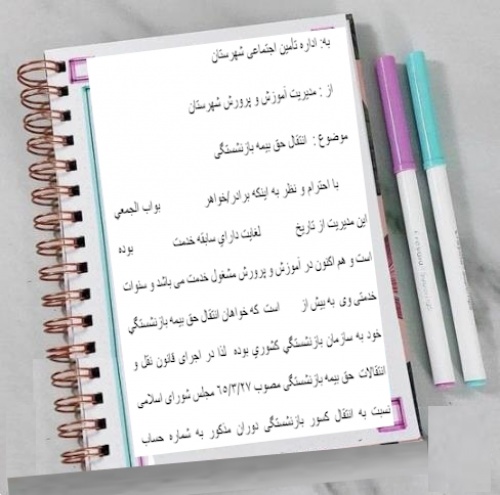 به: اداره تأمین اجتماعی شهرستان
از : مدیریت آموزش و پرورش شهرستان
موضوع : انتقال حق بیمه بازنشستگی
با احترام و نظر به اینکه برادر/خواهر بواب الجمعي
این مدیریت از تاریخ لغایت داراي سابقه خدمت بوده
است و هم اکنون در آموزش و پرورش مشغول خدمت می باشد و سنوات
خدمتی وی به بیش از است که خواهان انتقال حق بیمه بازنشستگي
خود به سازمان بازنشستگي کشوري بوده لذا در اجرای قانون نقل و
انتقالات حق بیمه بازنشستگی مصوب ٦٥/٣/٢٧ مجلس شورای اسلامی
نسبت به انتقال کسور بازنشستگی دوران مذکور به شماره حساب